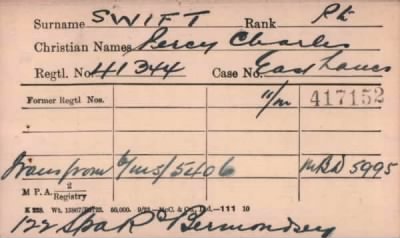 Surname SWIFT Rank Pte
Christian Names Percy Charles
Regtl. No. 41344 Case No. East Lancs
Former Regtl Nos. 11/M 417152
Trans from 6/MS/5406 MBD 5995
M P A. 2
Registry
K 228. Wt. 50,000. 9/23.—McC. & Co., Ltd.—111 10
122 Spa Rd Bermondsey